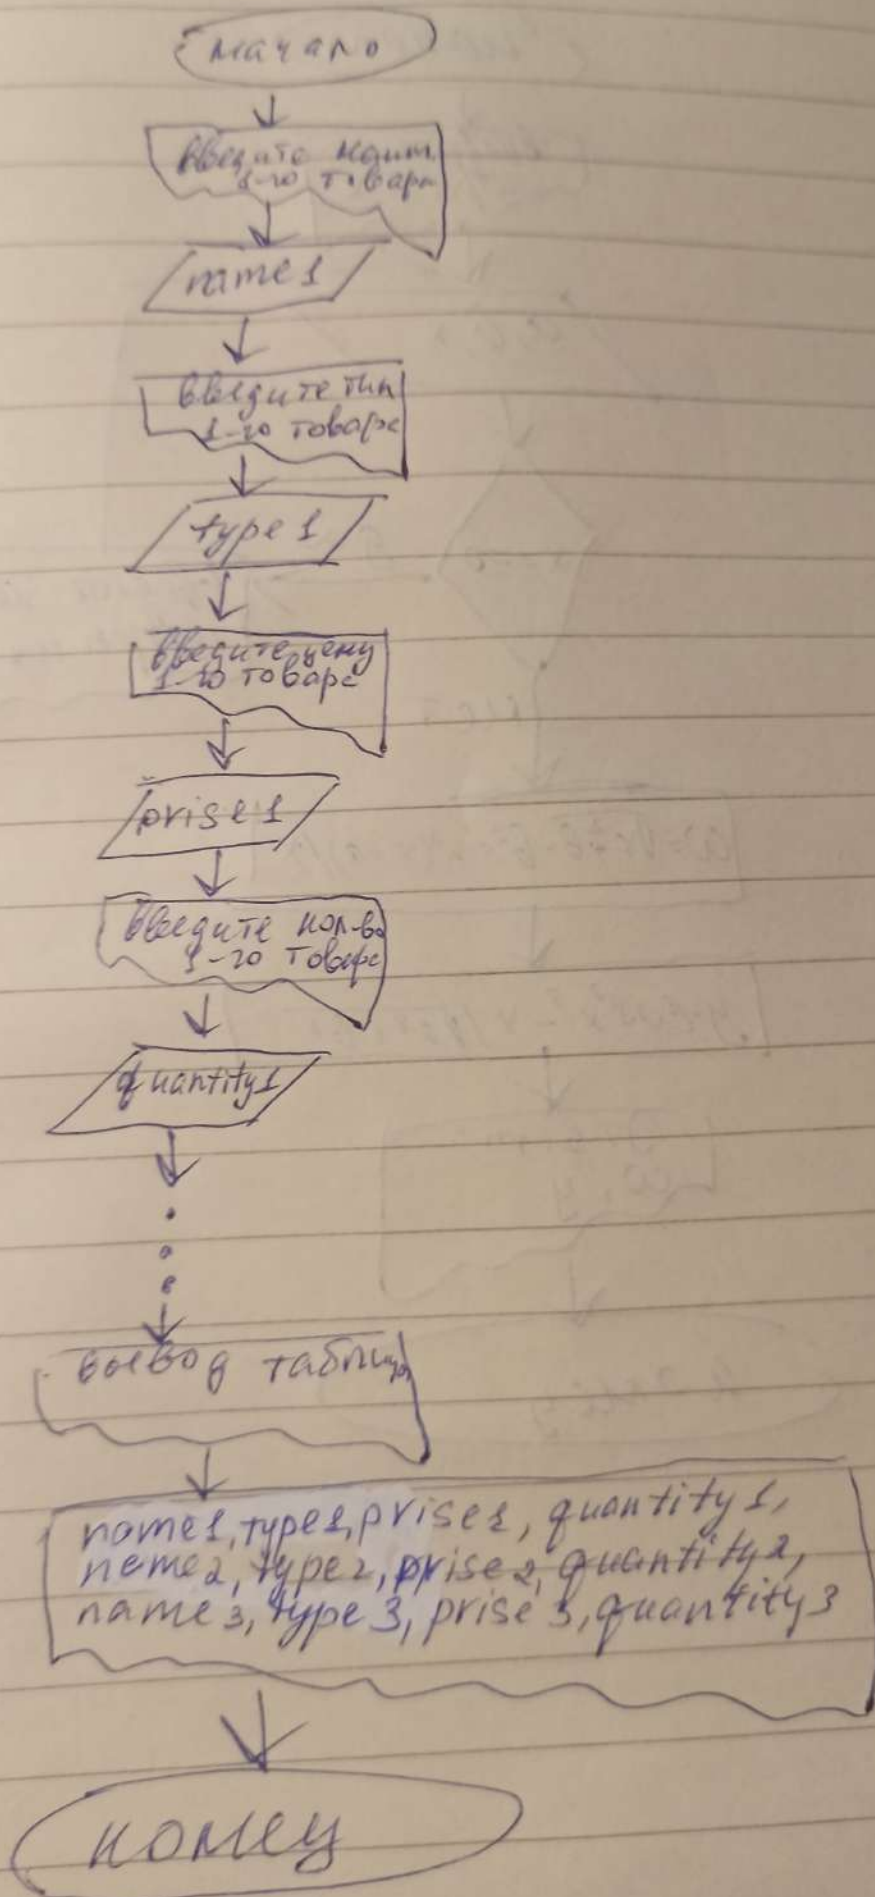 начало
введите наим.
1-го товара
name1
введите тип
1-го товара
type1
введите цену
1-го товара
prise1
введите кол-во
1-го товара
quantity1
вывод таблицы
name1, type1, prise1, quantity1,
name2, type2, prise2, quantity2,
name3, type3, prise3, quantity3
конец